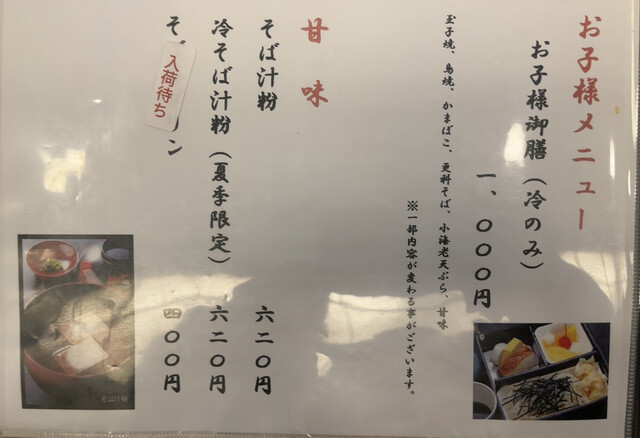 お子様メニュー
お子様御膳（冷のみ）
一、〇〇〇円
玉子焼、鳥焼、かまぼこ、更科そば、小海老天ぷら、甘味
※一部内容が変わる事がございます。
甘味
そば汁粉 六二〇円
冷そば汁粉（夏季限定） 六二〇円
入荷待ち
ン 四〇〇円
そば汁粉